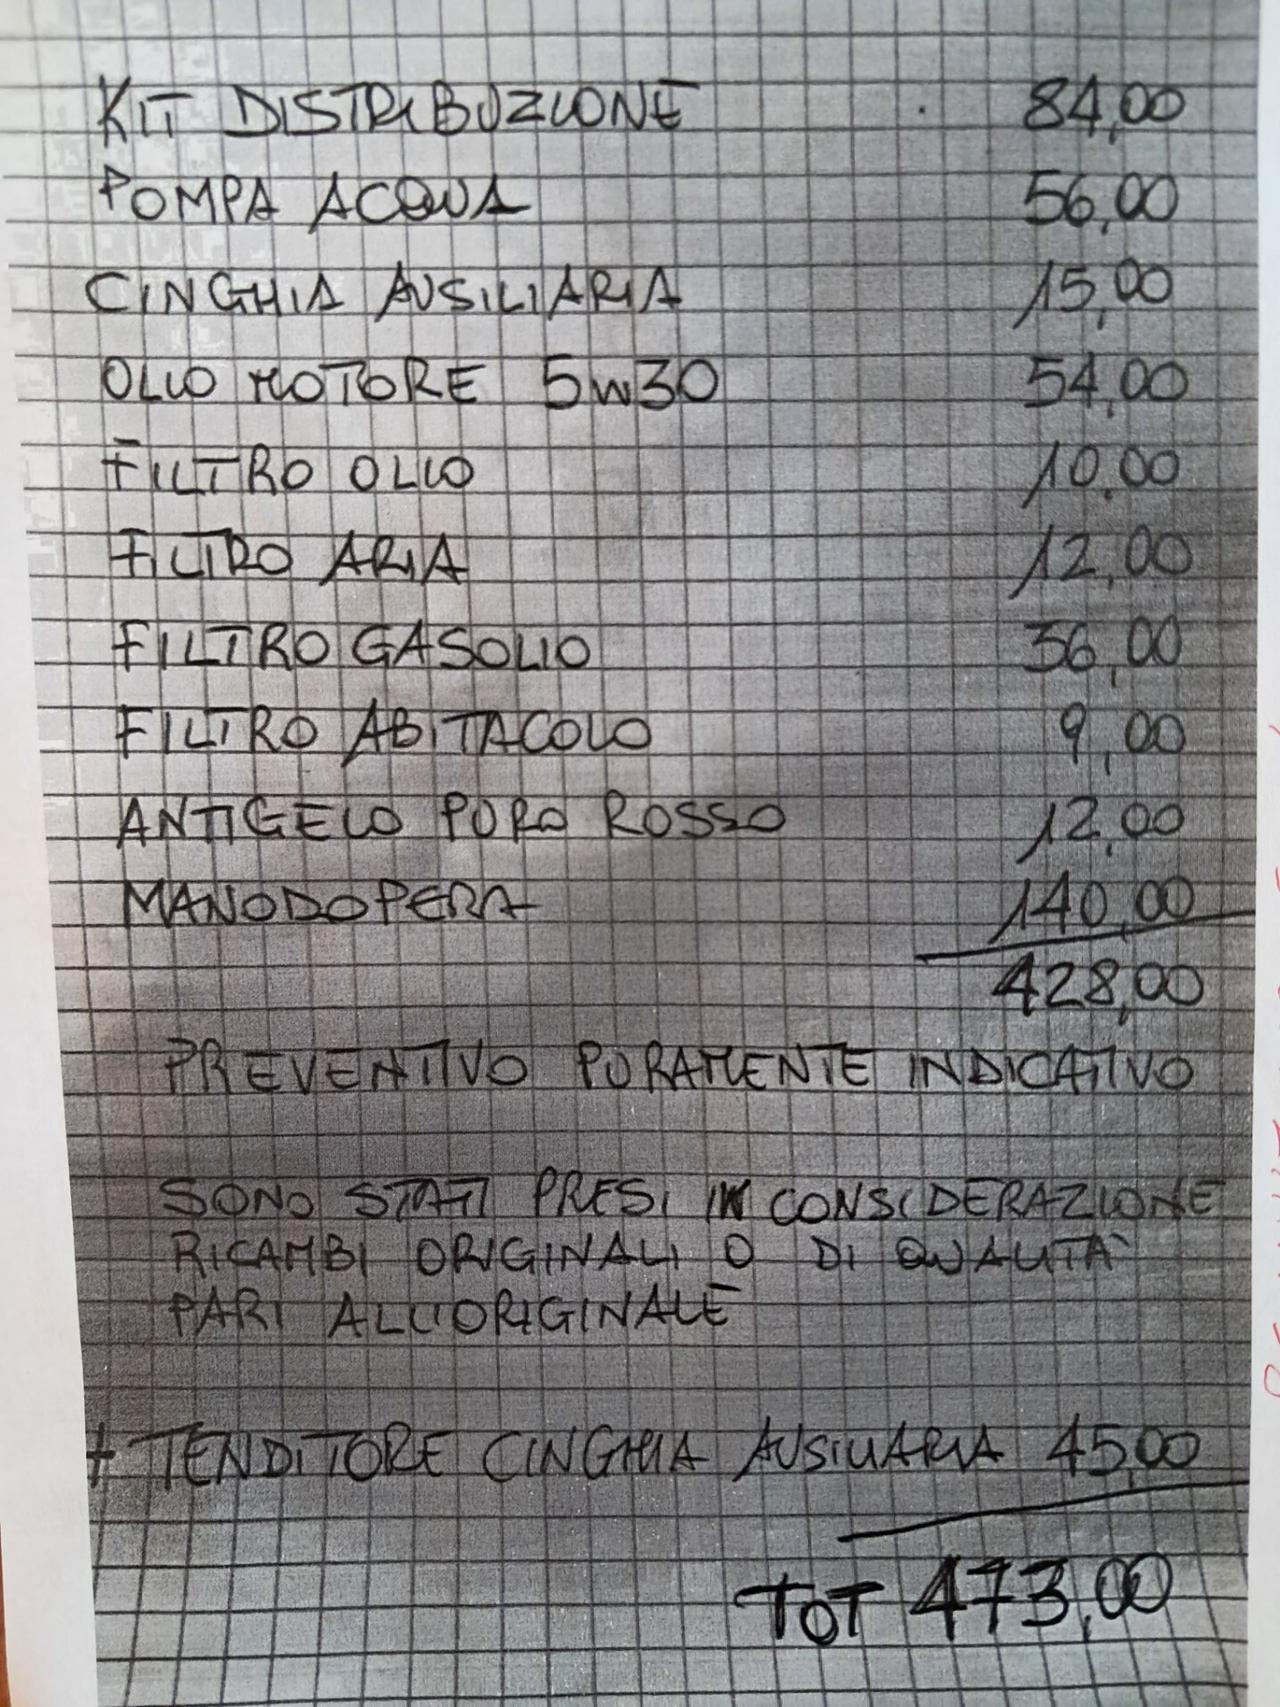 KIT DISTRIBUZIONE 84,00
POMPA ACQUA 56,00
CINGHIA AUSILIARIA 15,00
OLIO MOTORE 5W30 54,00
FILTRO OLIO 10,00
FILTRO ARIA 12,00
FILTRO GASOLIO 36,00
FILTRO ABITACOLO 9,00
ANTIGELO PURO ROSSO 12,00
MANODOPERA 140,00
428,00
PREVENTIVO PURAMENTE INDICATIVO
SONO STATI PRESI IN CONSIDERAZIONE
RICAMBI ORIGINALI O DI QUALITA'
PARI ALL'ORIGINALE
+ TENDITORE CINGHIA AUSILIARIA 45,00
TOT 473,00